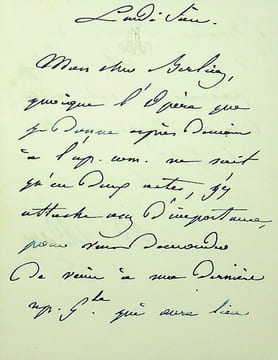 Lundi Soir.
Mon cher Berlioz,
quoique l'Opéra que
je donne après demain
à l'op. com. ne soit
qu'en deux actes, j'y
attache assez d'importance,
pour vous demander
de venir à ma dernière
rép. G.le qui aura lieu